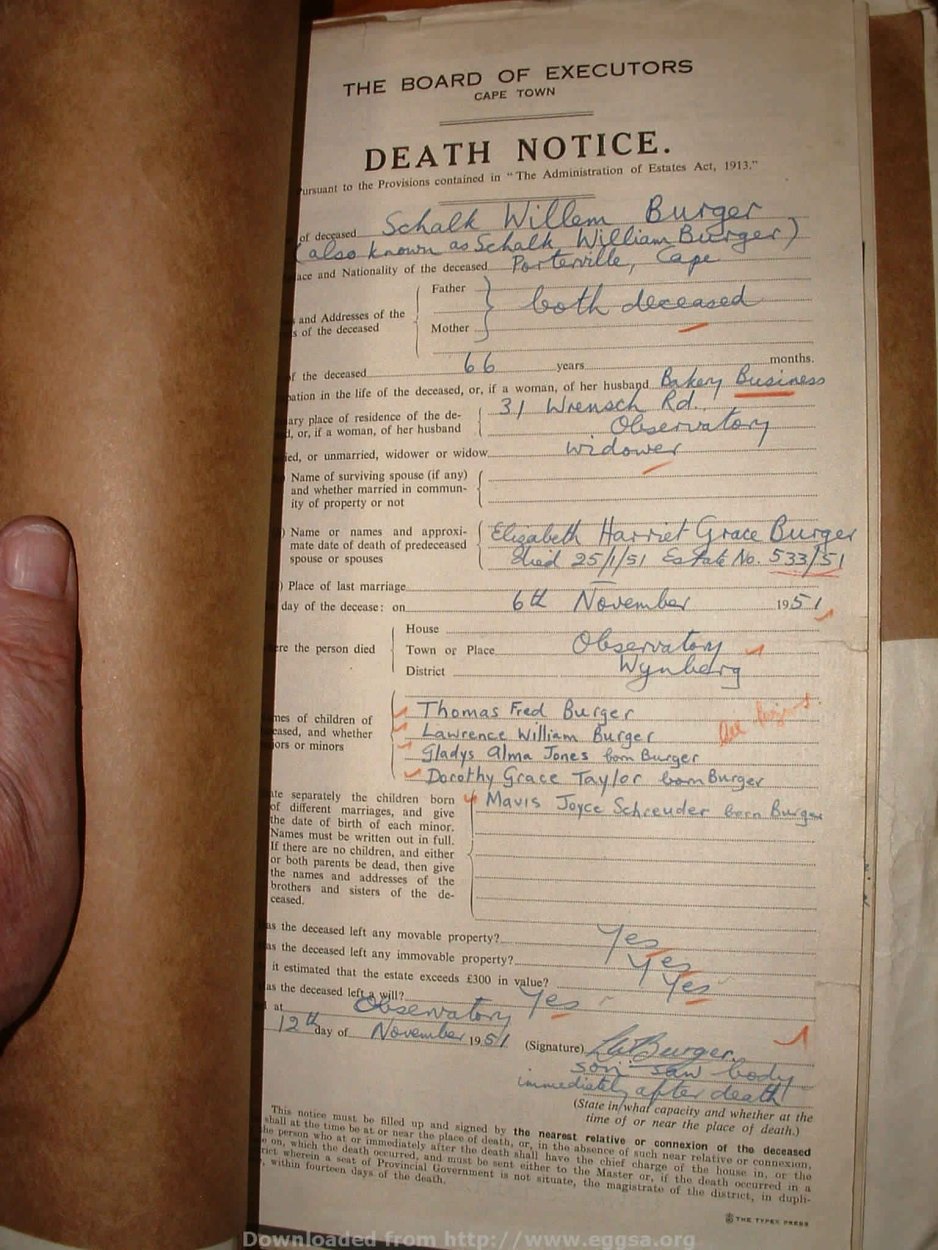 THE BOARD OF EXECUTORS
CAPE TOWN
DEATH NOTICE.
ursuant to the Provisions contained in "The Administration of Estates Act, 1913."
of deceased Schalk Willem Burger
(also known as Schalk William Burger)
ace and Nationality of the deceased Porterville, Cape
Father
s and Addresses of the
s of the deceased
both deceased
Mother
f the deceased 66 years months.
pation in the life of the deceased, or, if a woman, of her husband Bakery Business
ary place of residence of the de- 31 Wrensch Rd.
d, or, if a woman, of her husband Observatory
ied, or unmarried, widower or widow Widower
) Name of surviving spouse (if any)
and whether married in commun-
ity of property or not
) Name or names and approxi- Elizabeth Harriet Grace Burger
mate date of death of predeceased died 25/1/51 Estate No. 533/51
spouse or spouses
) Place of last marriage —
day of the decease: on 6th November 1951
House
ere the person died Town or Place Observatory
District Wynberg
mes of children of Thomas Fred Burger
eased, and whether Lawrence William Burger
jors or minors Gladys Alma Jones born Burger
Dorothy Grace Taylor born Burger
ate separately the children born Mavis Joyce Schreuder born Burger
of different marriages, and give
the date of birth of each minor.
Names must be written out in full.
If there are no children, and either
or both parents be dead, then give
the names and addresses of the
brothers and sisters of the de-
ceased.
as the deceased left any movable property? Yes
as the deceased left any immovable property? Yes
it estimated that the estate exceeds £300 in value? Yes
as the deceased left a will? Yes
d at Observatory
12th day of November 1951 (Signature) Burger
son saw body
immediately after death
(State in what capacity and whether at the
time of or near the place of death.)
This notice must be filled up and signed by the nearest relative or connexion of the deceased
shall at the time be at or near the place of death, or, in the absence of such near relative or connexion,
he person who at or immediately after the death shall have the chief charge of the house in, or the
e on, which the death occurred, and must be sent either to the Master or, if the death occurred in a
rict wherein a seat of Provincial Government is not situate, the magistrate of the district, in dupli-
, within fourteen days of the death.
THE TYPEX PRESS
Downloaded from http://www.eggsa.org